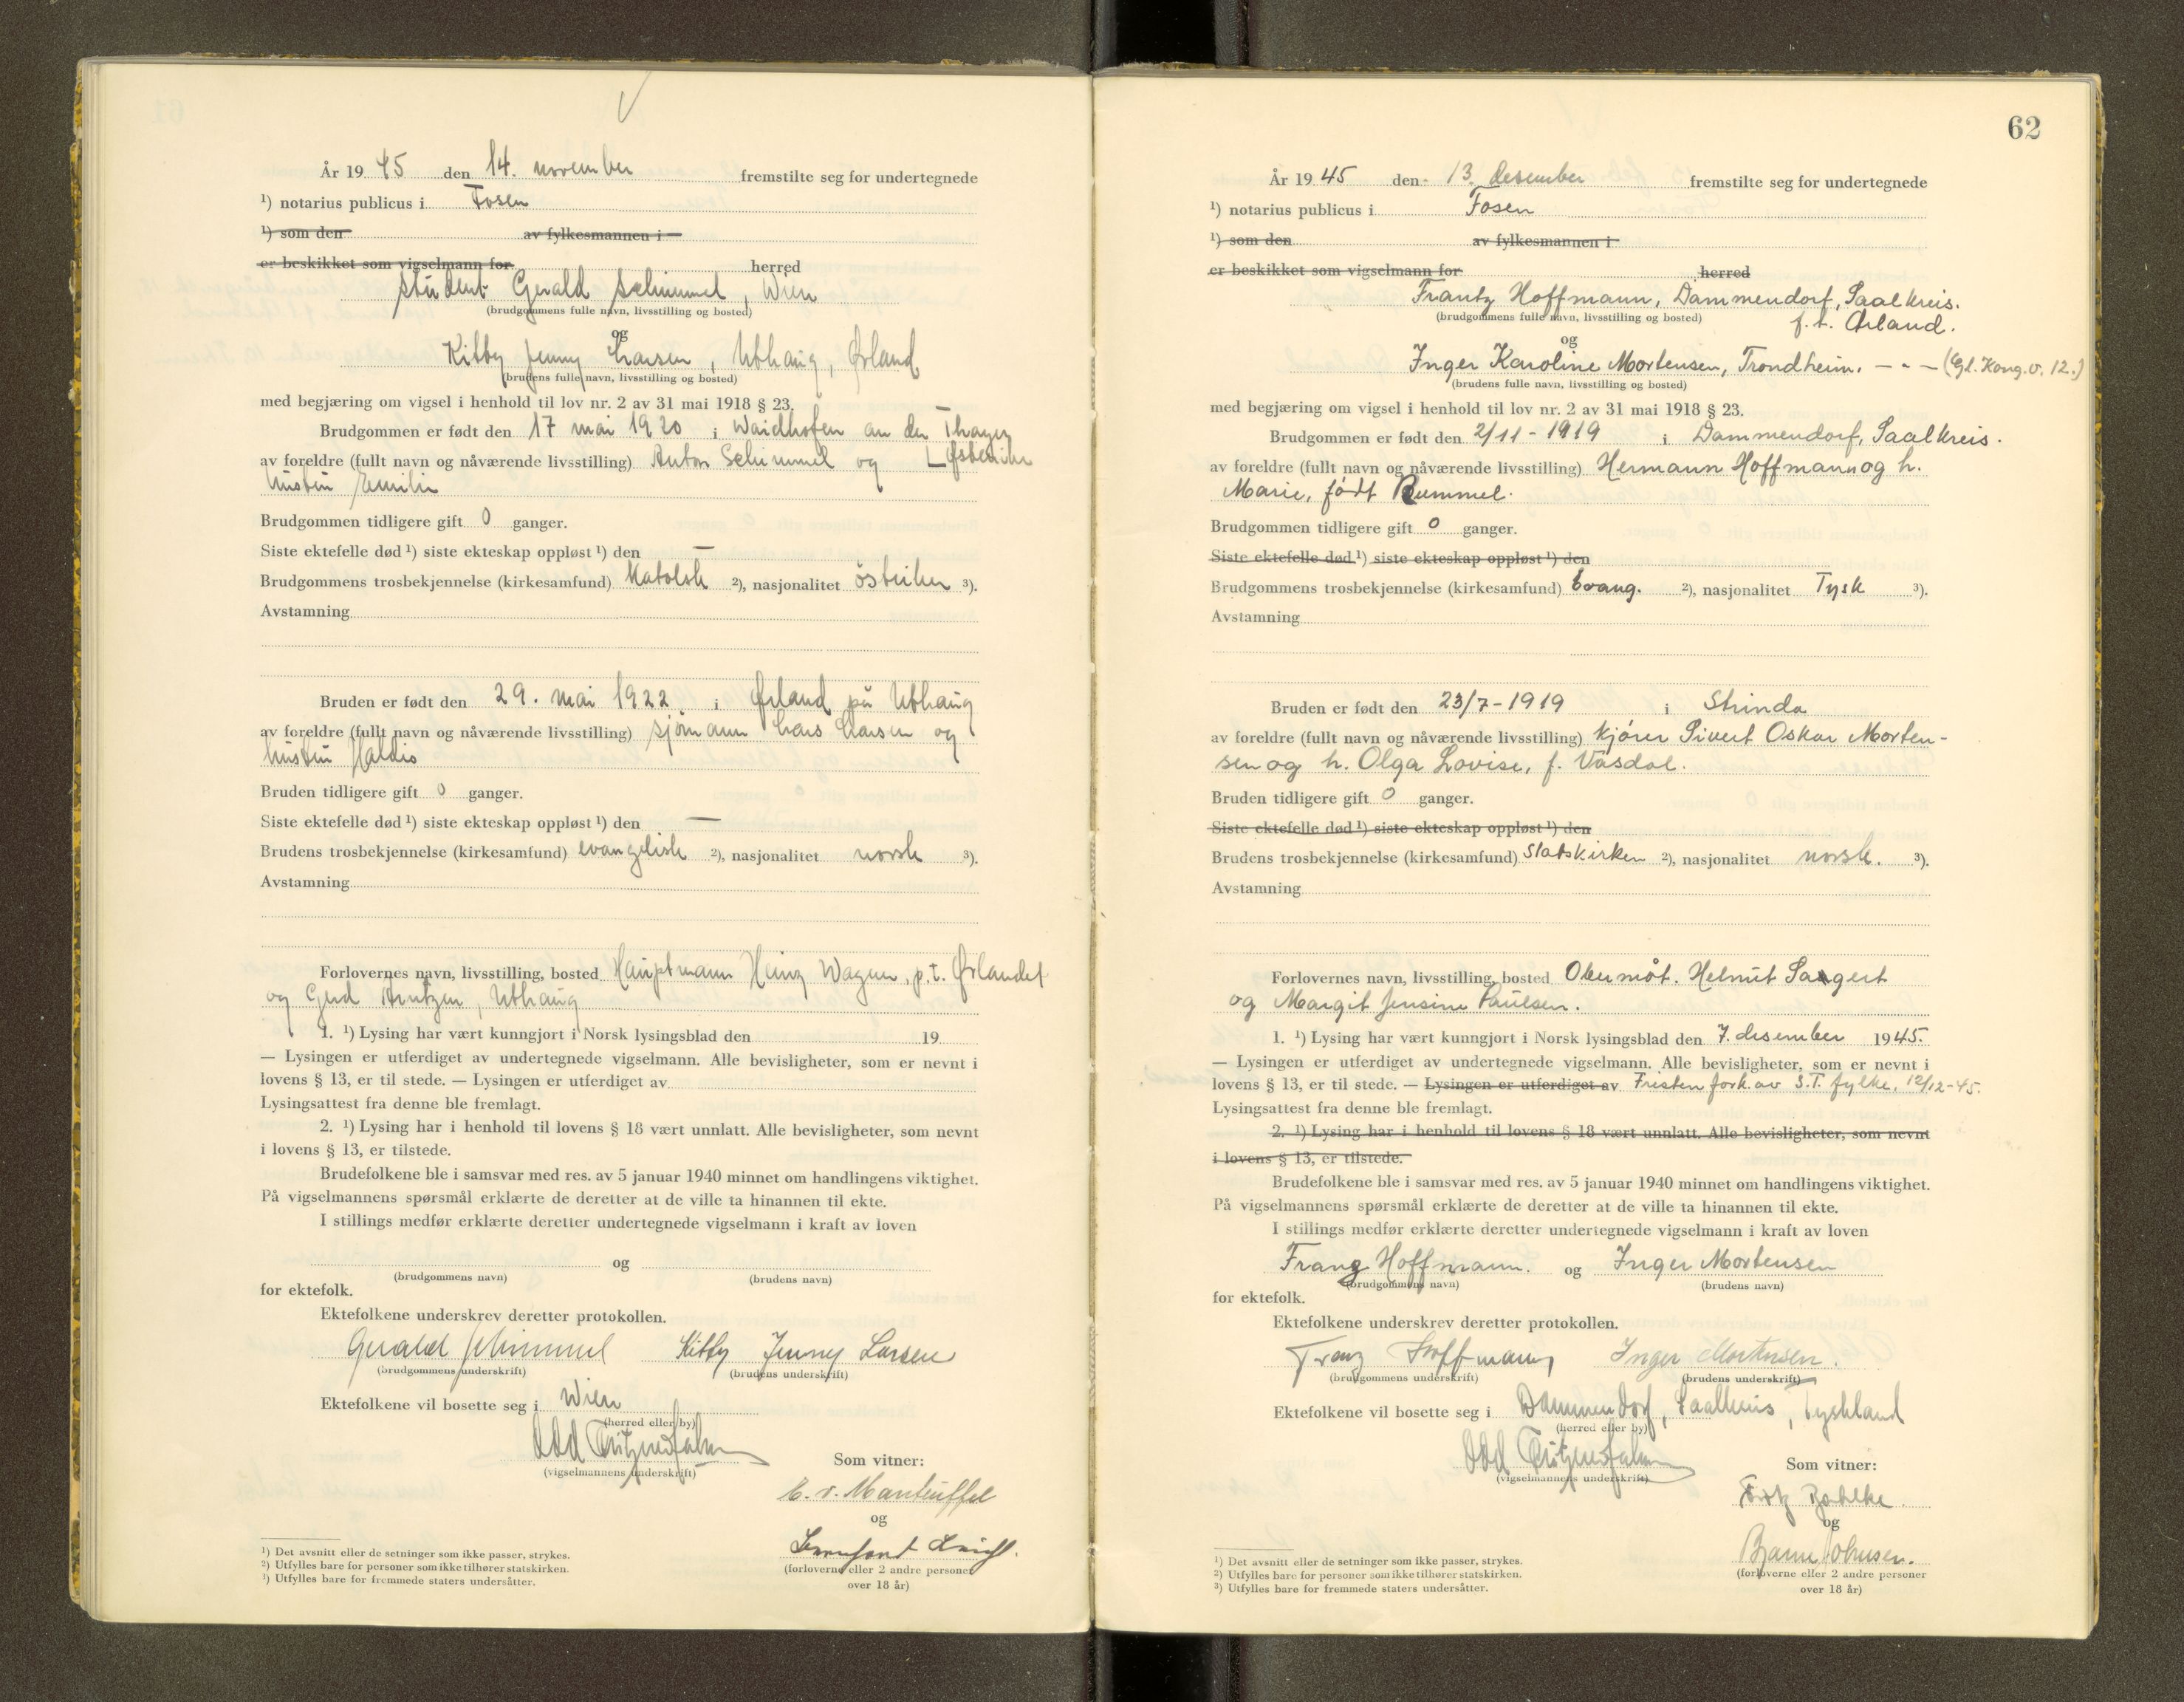 År 19 45 den 14. november fremstilte seg for undertegnede
¹) notarius publicus i Fosen
¹) som den av fylkesmannen i
er beskikket som vigselmann for herred
student Gerald Schimmel, Wien
(brudgommens fulle navn, livsstilling og bosted)
og
Kitty Jenny Larsen, Uthaug, Ørland
(brudens fulle navn, livsstilling og bosted)
med begjæring om vigsel i henhold til lov nr. 2 av 31 mai 1918 § 23.
Brudgommen er født den 17 mai 1920 i Waidhofen an der Thaya
av foreldre (fullt navn og nåværende livsstilling) Anton Schimmel og Østerike
hustru Emilie
Brudgommen tidligere gift 0 ganger.
Siste ektefelle død ¹) siste ekteskap oppløst ¹) den —
Brudgommens trosbekjennelse (kirkesamfund) Katolsk ²), nasjonalitet østriker ³).
Avstamning
Bruden er født den 29. mai 1922 i Ørland på Uthaug
av foreldre (fullt navn og nåværende livsstilling) sjømann Lars Larsen og
hustru Haldis
Bruden tidligere gift 0 ganger.
Siste ektefelle død ¹) siste ekteskap oppløst ¹) den —
Brudens trosbekjennelse (kirkesamfund) evangelisk ²), nasjonalitet norsk ³).
Avstamning
Forlovernes navn, livsstilling, bosted Hauptmann Heinz Wagner, p.t. Ørlandet
og Gerd Arntzen, Uthaug
1. ¹) Lysing har vært kunngjort i Norsk lysingsblad den 19
— Lysingen er utferdiget av undertegnede vigselmann. Alle bevisligheter, som er nevnt i
lovens § 13, er til stede. — Lysingen er utferdiget av
Lysingsattest fra denne ble fremlagt.
2. ¹) Lysing har i henhold til lovens § 18 vært unnlatt. Alle bevisligheter, som nevnt
i lovens § 13, er tilstede.
Brudefolkene ble i samsvar med res. av 5 januar 1940 minnet om handlingens viktighet.
På vigselmannens spørsmål erklærte de deretter at de ville ta hinannen til ekte.
I stillings medfør erklærte deretter undertegnede vigselmann i kraft av loven
og
(brudgommens navn) (brudens navn)
for ektefolk.
Ektefolkene underskrev deretter protokollen.
Gerald Schimmel Kitty Jenny Larsen
(brudgommens underskrift) (brudens underskrift)
Ektefolkene vil bosette seg i Wien
(herred eller by)
Odd
(vigselmannens underskrift)
Som vitner:
v. Manteuffel
og
(forloverne eller 2 andre personer
over 18 år)
¹) Det avsnitt eller de setninger som ikke passer, strykes.
²) Utfylles bare for personer som ikke tilhører statskirken.
³) Utfylles bare for fremmede staters undersåtter.
62
År 19 45 den 13. desember fremstilte seg for undertegnede
¹) notarius publicus i Fosen
¹) som den av fylkesmannen i
er beskikket som vigselmann for herred
Frantz Hoffmann, Dammendorf, Saalkreis.
(brudgommens fulle navn, livsstilling og bosted)
f. t. Ørland.
og
Inger Karoline Mortensen, Trondheim. — " — (Gl. Kong. v. 12.)
(brudens fulle navn, livsstilling og bosted)
med begjæring om vigsel i henhold til lov nr. 2 av 31 mai 1918 § 23.
Brudgommen er født den 2/11 - 1919 i Dammendorf, Saalkreis.
av foreldre (fullt navn og nåværende livsstilling) Hermann Hoffmann og h.
Marie, født Rummel.
Brudgommen tidligere gift 0 ganger.
Siste ektefelle død ¹) siste ekteskap oppløst ¹) den
Brudgommens trosbekjennelse (kirkesamfund) Evang. ²), nasjonalitet Tysk ³).
Avstamning
Bruden er født den 23/7 - 1919 i Strinda
av foreldre (fullt navn og nåværende livsstilling) kjører Sivert Oskar Morten-
sen og h. Olga Lovise, f. Vasdal.
Bruden tidligere gift 0 ganger.
Siste ektefelle død ¹) siste ekteskap oppløst ¹) den
Brudens trosbekjennelse (kirkesamfund) Statskirken ²), nasjonalitet norsk. ³).
Avstamning
Forlovernes navn, livsstilling, bosted Obermåt. Helmut Sangert
og Margit Jensine Paulsen.
1. ¹) Lysing har vært kunngjort i Norsk lysingsblad den 7. desember 1945.
— Lysingen er utferdiget av undertegnede vigselmann. Alle bevisligheter, som er nevnt i
lovens § 13, er til stede. — Lysingen er utferdiget av Fristen fork. av S.T. fylke. 12/12-45.
Lysingsattest fra denne ble fremlagt.
2. ¹) Lysing har i henhold til lovens § 18 vært unnlatt. Alle bevisligheter, som nevnt
i lovens § 13, er tilstede.
Brudefolkene ble i samsvar med res. av 5 januar 1940 minnet om handlingens viktighet.
På vigselmannens spørsmål erklærte de deretter at de ville ta hinannen til ekte.
I stillings medfør erklærte deretter undertegnede vigselmann i kraft av loven
Franz Hoffmann. og Inger Mortensen
(brudgommens navn) (brudens navn)
for ektefolk.
Ektefolkene underskrev deretter protokollen.
Franz Hoffmann Inger Mortensen.
(brudgommens underskrift) (brudens underskrift)
Ektefolkene vil bosette seg i Dammendorf, Saalkreis, Tyskland
(herred eller by)
Odd
(vigselmannens underskrift)
Som vitner:
Fritz
og
Bjarne Johnsen.
(forloverne eller 2 andre personer
over 18 år)
¹) Det avsnitt eller de setninger som ikke passer, strykes.
²) Utfylles bare for personer som ikke tilhører statskirken.
³) Utfylles bare for fremmede staters undersåtter.